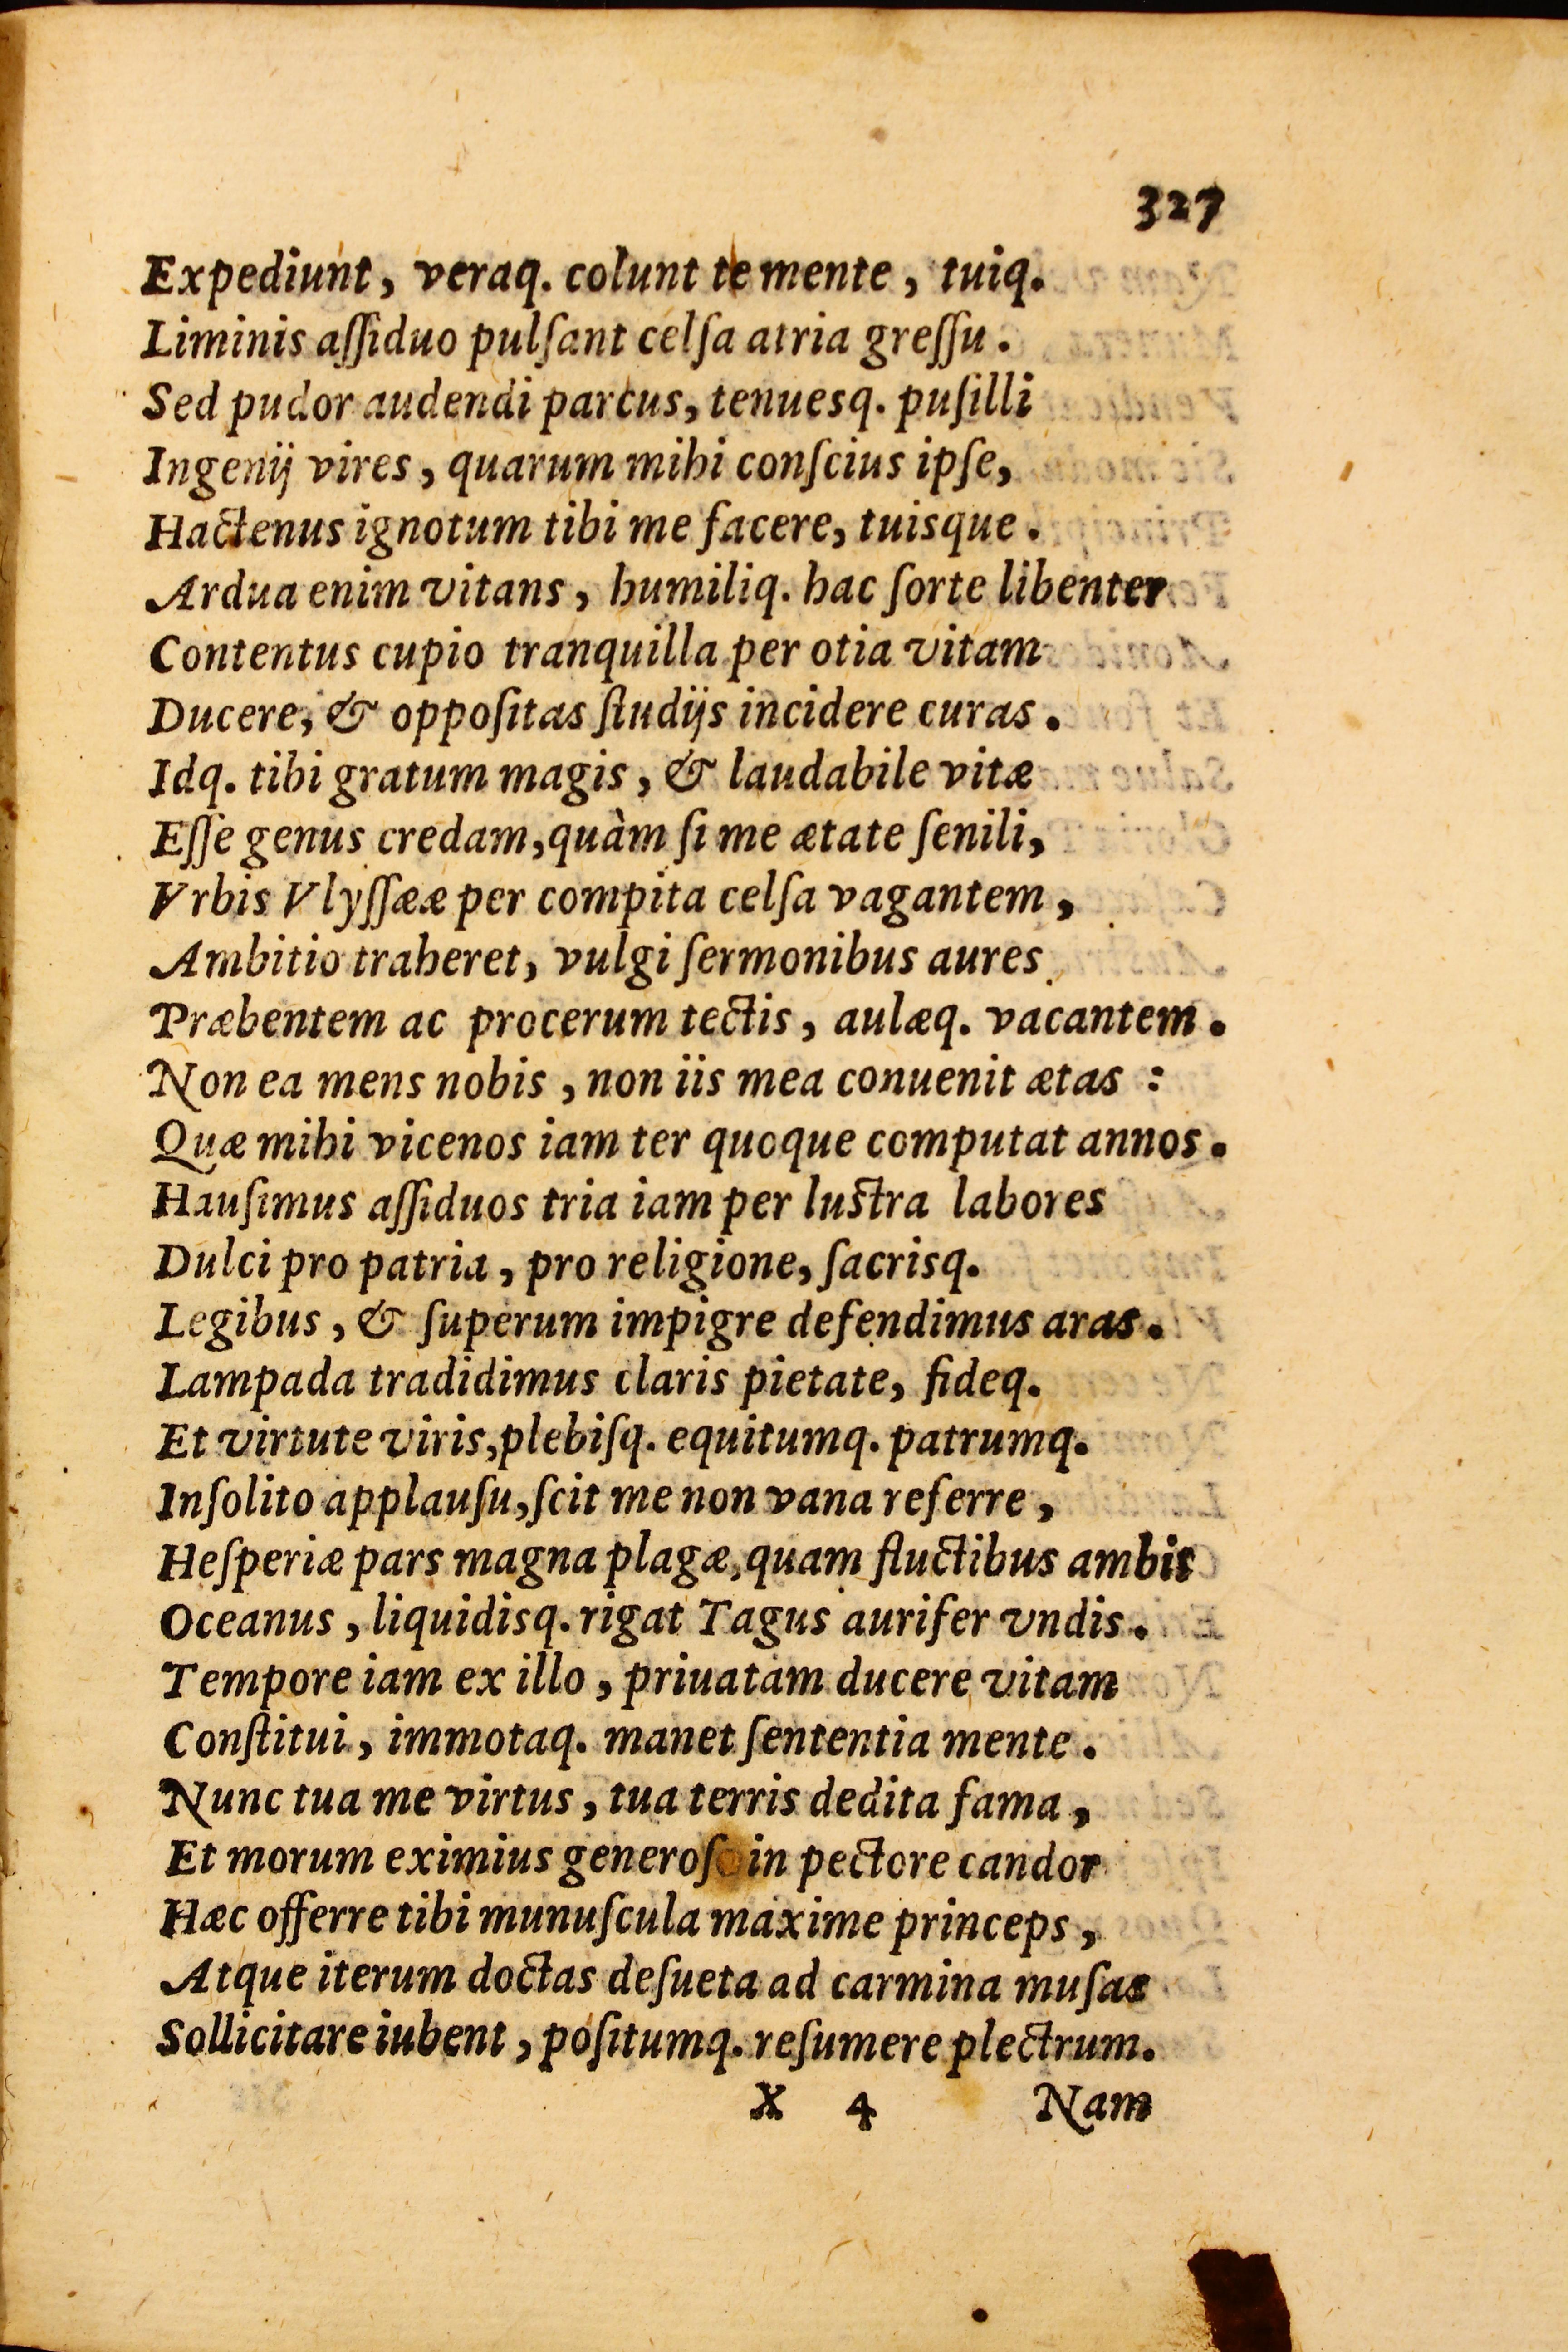 327
Expediunt, veraq. colunt te mente, tuiq.
Liminis aſſiduo pulſant celſa atria greſſu.
Sed pudor audendi parcus, tenuesq. puſilli
Ingenij vires, quarum mihi conſcius ipſe,
Hactenus ignotum tibi me facere, tuisque.
Ardua enim vitans, humiliq. hac ſorte libenter
Contentus cupio tranquilla per otia vitam
Ducere, & oppoſitas ſtudijs incidere curas.
Idq. tibi gratum magis, & laudabile vitæ
Eſſe genus credam, quàm ſi me ætate ſenili,
Vrbis Vlyſſææ per compita celſa vagantem,
Ambitio traheret, vulgi ſermonibus aures
Præbentem ac procerum tectis, aulæq. vacantem.
Non ea mens nobis, non iis mea conuenit ætas:
Quæ mihi vicenos iam ter quoque computat annos.
Hauſimus aſſiduos tria iam per luſtra labores
Dulci pro patria, pro religione, ſacrisq.
Legibus, & ſuperum impigre defendimus aras.
Lampada tradidimus claris pietate, fideq.
Et virtute viris, plebiſq. equitumq. patrumq.
Inſolito applauſu, ſcit me non vana referre,
Heſperiæ pars magna plagæ, quam fluctibus ambit
Oceanus, liquidisq. rigat Tagus aurifer vndis.
Tempore iam ex illo, priuatam ducere vitam
Conſtitui, immotaq. manet ſententia mente.
Nunc tua me virtus, tua terris dedita fama,
Et morum eximius generoſo in pectore candor
Hæc offerre tibi munuſcula maxime princeps,
Atque iterum doctas deſueta ad carmina muſas
Sollicitare iubent, poſitumq. reſumere plectrum.
X 4 Nam